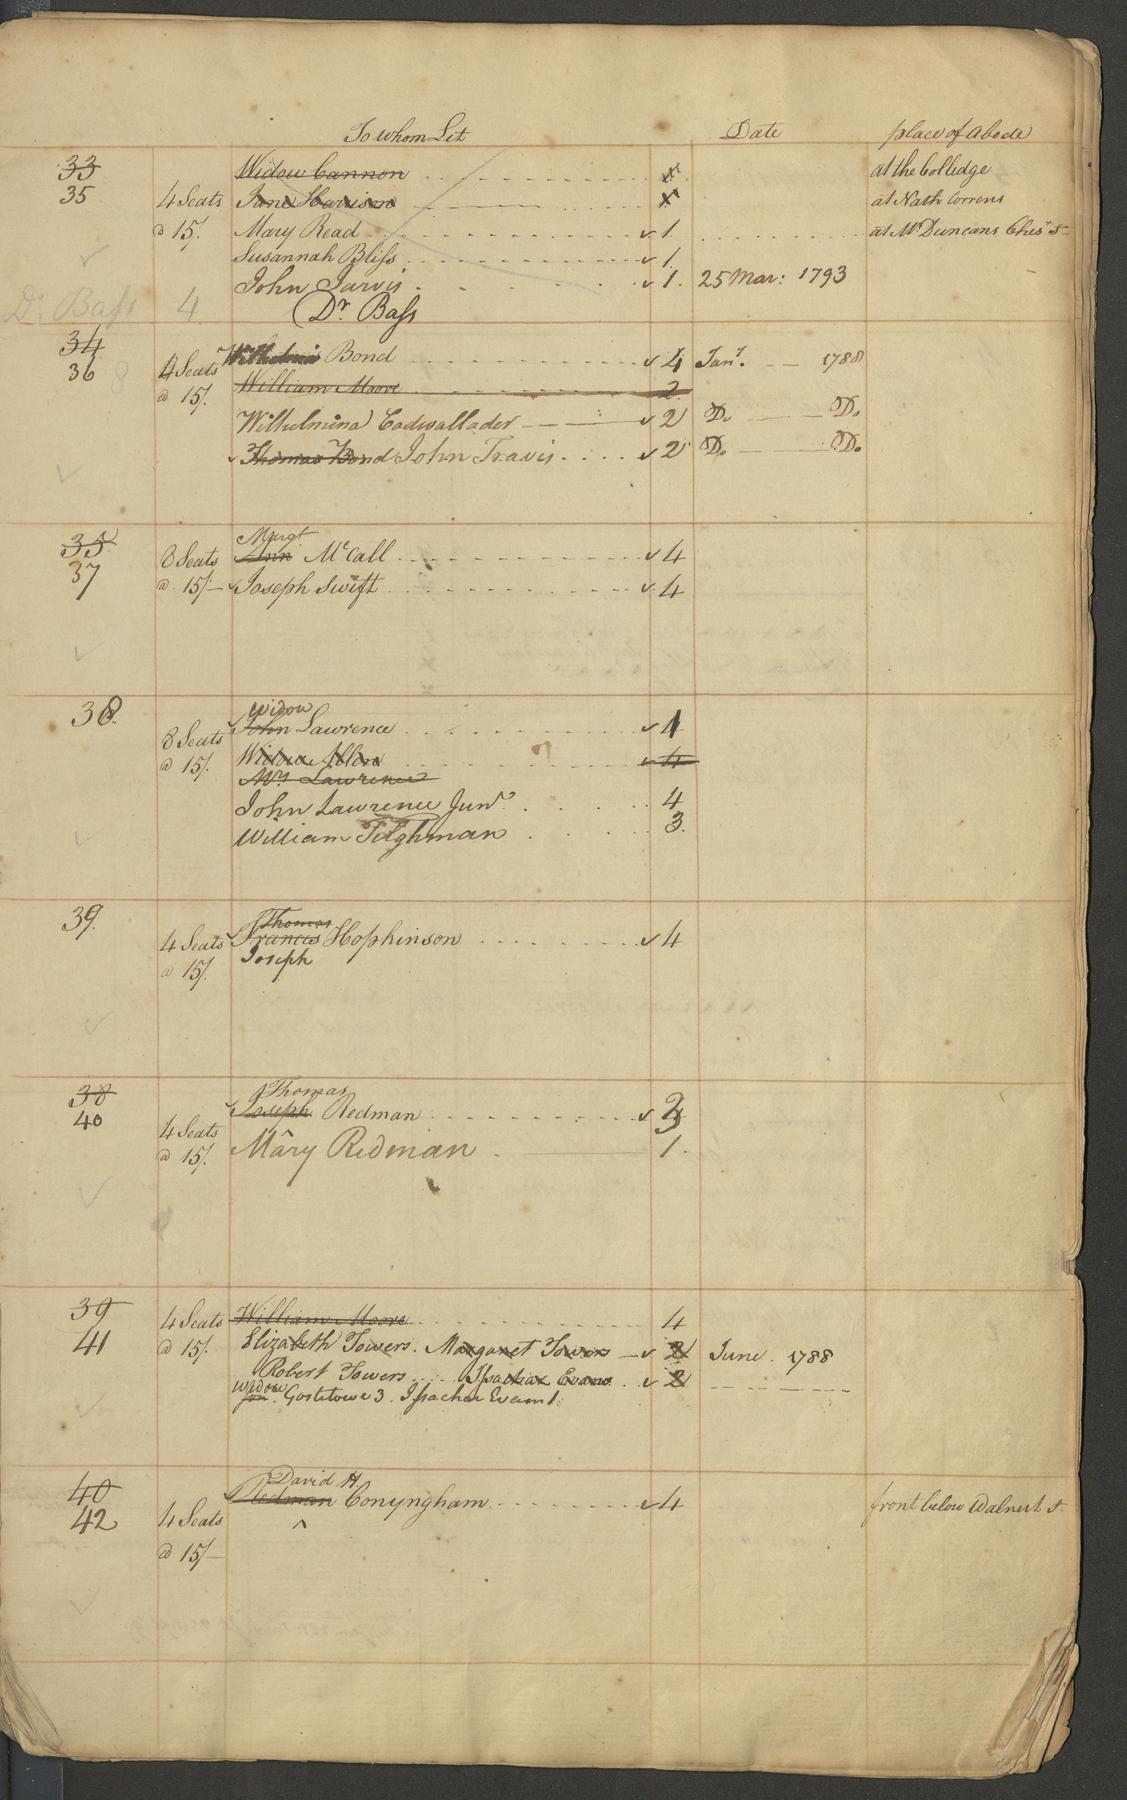 To whom Let Date place of Abode
33 Widow Cannon x at the Colledge
35 4 Seats Jane Harrison x at Nath Correns
@ 15/. Mary Read 1. at Mr Duncans Ches St
Susannah Bliss 1.
John Jarvis 1. 25 Mar: 1793
Dr. Bass 4 Dr Bass
34
36 4 Seats Bond 4 Jany. 1788
@ 15/. William Moore 2
Wilhelmina Cadwallader 2 Do Do
Thomas Bond John Travis 2 Do Do
35 Margt
37 8 Seats Ann McCall 4
@ 15/- Joseph Swift 4
38. widow
8 Seats John Lawrence 1
@ 15/. Widow Allen 4
Mrs Lawrence
John Lawrence Junr. 4
William Tilghman 3.
39. Thomas
4 Seats Francis Hopkinson 4
@ 15/. Joseph
38 Thomas
40 Joseph Redman 3
4 Seats
@ 15/. Mary Redman 1.
39 4 Seats William Moore 4
41 @ 15/. Elizabeth Towers. Margaret Towers 2 June. 1788
Robert Towers Issachar Evans 2
widow
Gostelowe 3. Issachar Evans 1
40 David H
42 Redman Conyngham 4 front below Walnut St.
4 Seats
@ 15/-